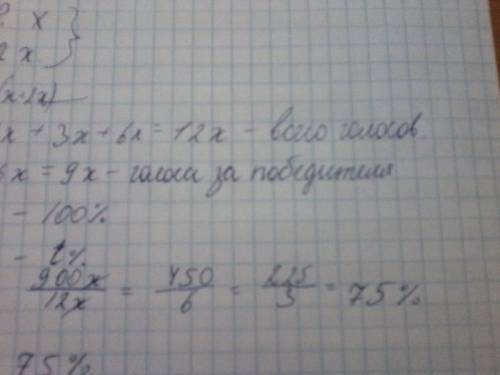 x
2x
(x·2x)
x + 3x + 6x = 12x - всего голосов
6x = 9x - голоса за победителя
- 100%
- t%
900x/12x = 450/6 = 225/3 = 75%
75%